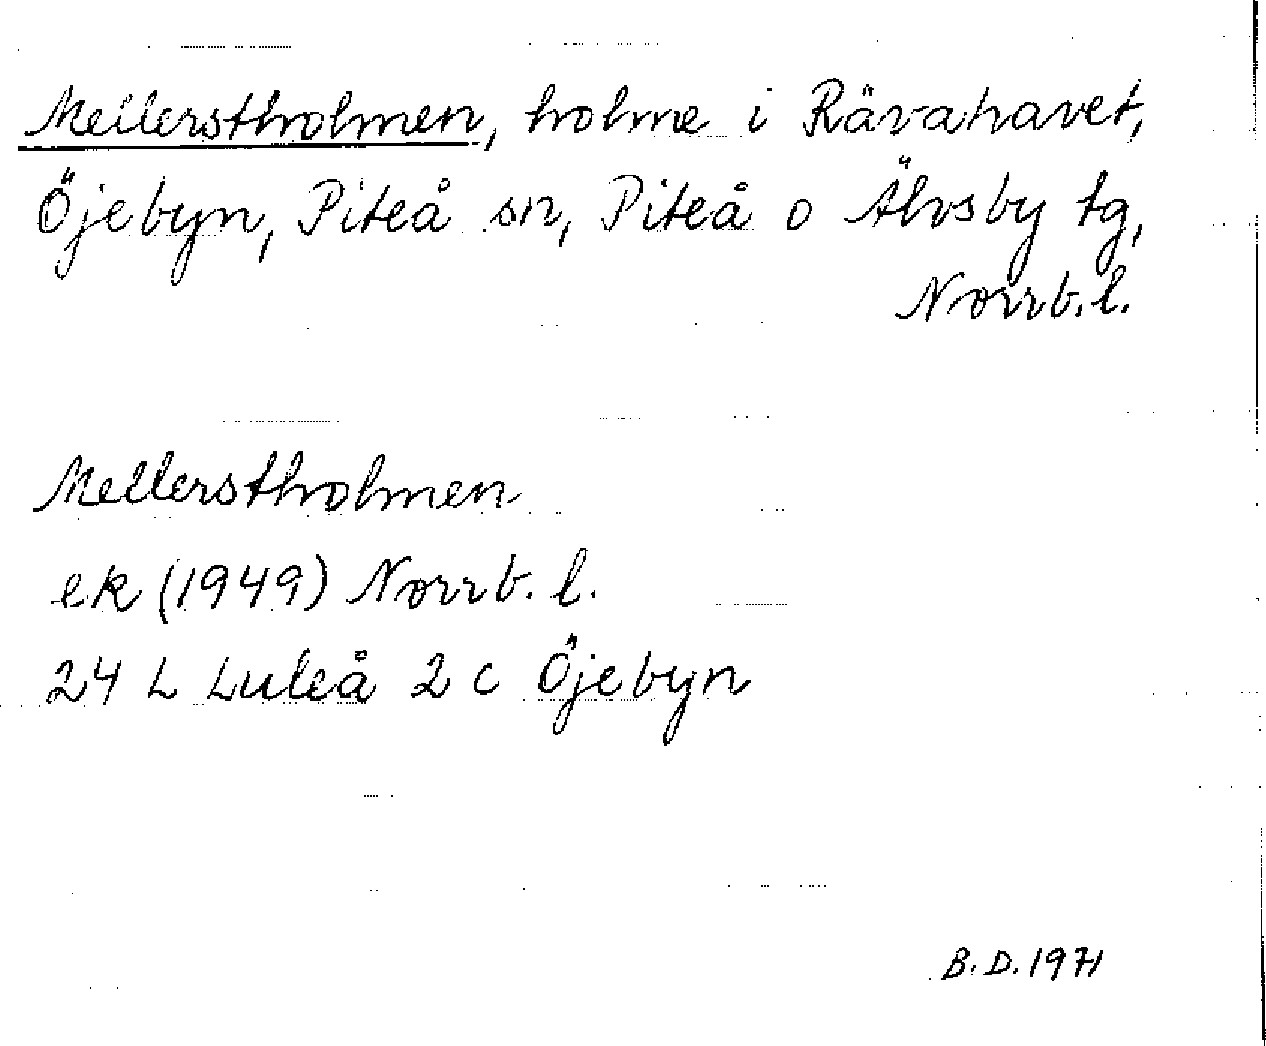 Mellerstholmen, holme i Rävahavet,
Öjebyn, Piteå sn, Piteå o Älvsby tg,
Norrb. l.
Mellerstholmen
ek (1949) Norrb. l.
24 L Luleå 2 c Öjebyn
B. D. 1971